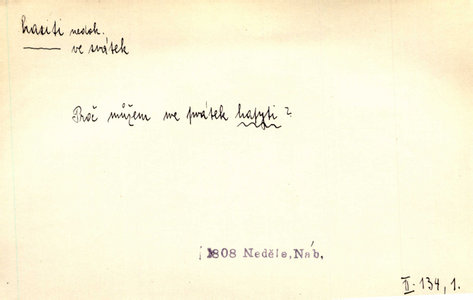 hasiti nedok.
ve svátek
Proč můžem we swátek hasyti?
1808 Neděle, Náb.
II. 134, 1.